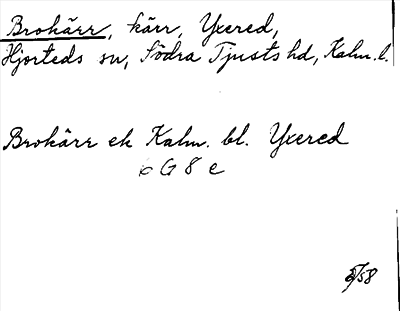 Brokärr, kärr, Yxered,
Hjorteds sn, Södra Tjusts hd, Kalm. l.
Brokärr ek Kalm. bl. Yxered
c G 8 e